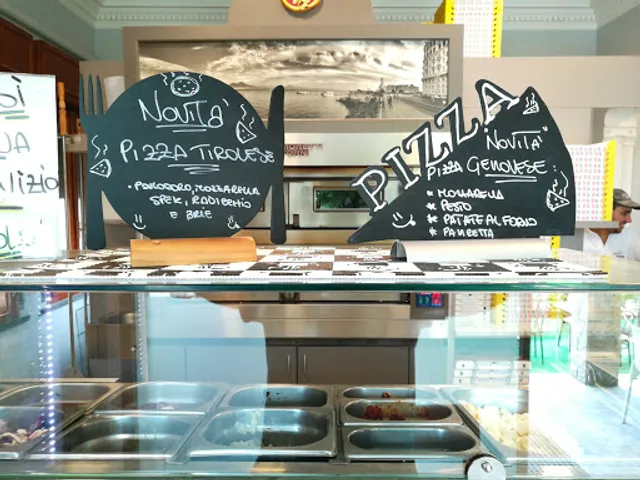 NOVITA'
PIZZA TIROLESE
• POMODORO, MOZZARELLA
SPEK, RADICCHIO
E BRIE
PIZZA
NOVITA'
PIZZA GENOVESE:
* MOZZARELLA
* PESTO
* PATATE AL FORNO
* PANCETTA